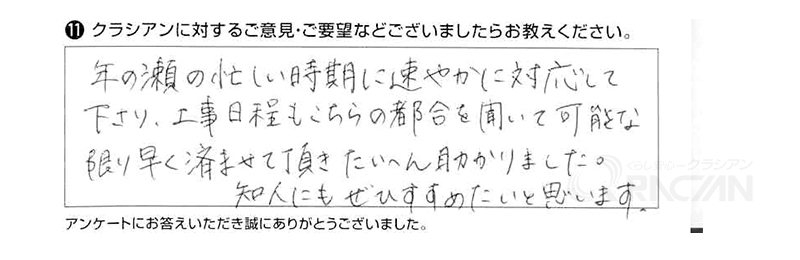 ⑪ クラシアンに対するご意見・ご要望などございましたらお教えください。
年の瀬の忙しい時期に速やかに対応して
下さり、工事日程もこちらの都合を聞いて可能な
限り早く済ませて頂きたいへん助かりました。
知人にもぜひすすめたいと思います。
アンケートにお答えいただき誠にありがとうございました。
くらしあんしんクラシアン
QRACIAN